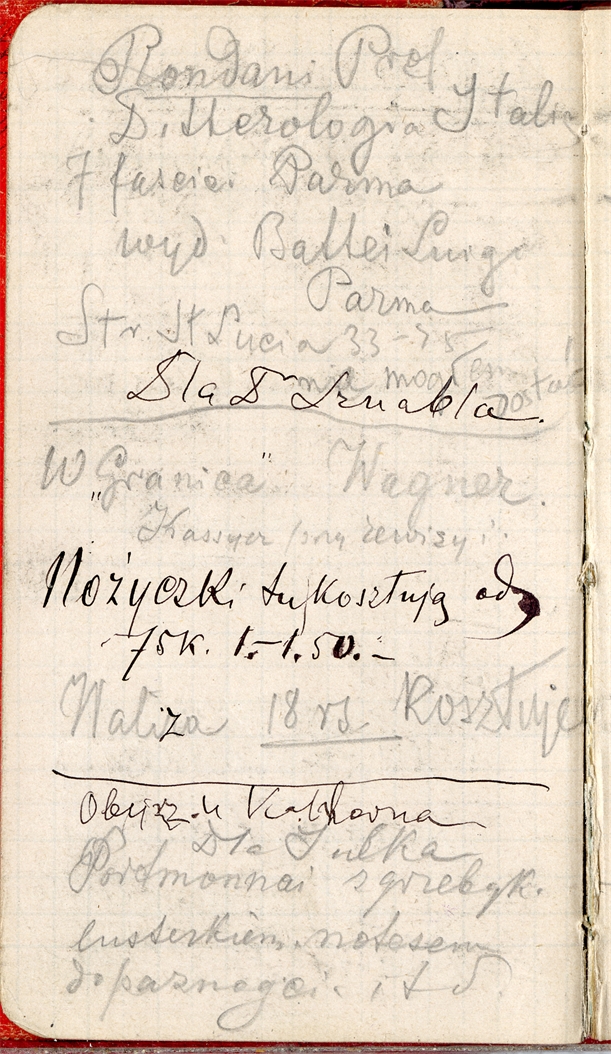 Rondani Prof
Ditterologia Italia
7 fascici Parma
wyd Battei Luigi
Parma
Str. St Lucia 33-75
nie mogłem dostać
Dla Dr Sznabla.
W „Granica" Wagner.
Kassyer przy rewizyi.
Nożyczki tu kosztują od
75k. 1.–1.50.–
Waliza 18 rs kosztuje
z
Obejrz. u Kathorna
Dla Julka
Portmonnai z grzebyk.
lusterkiem. notesem
do paznogci. i t d.